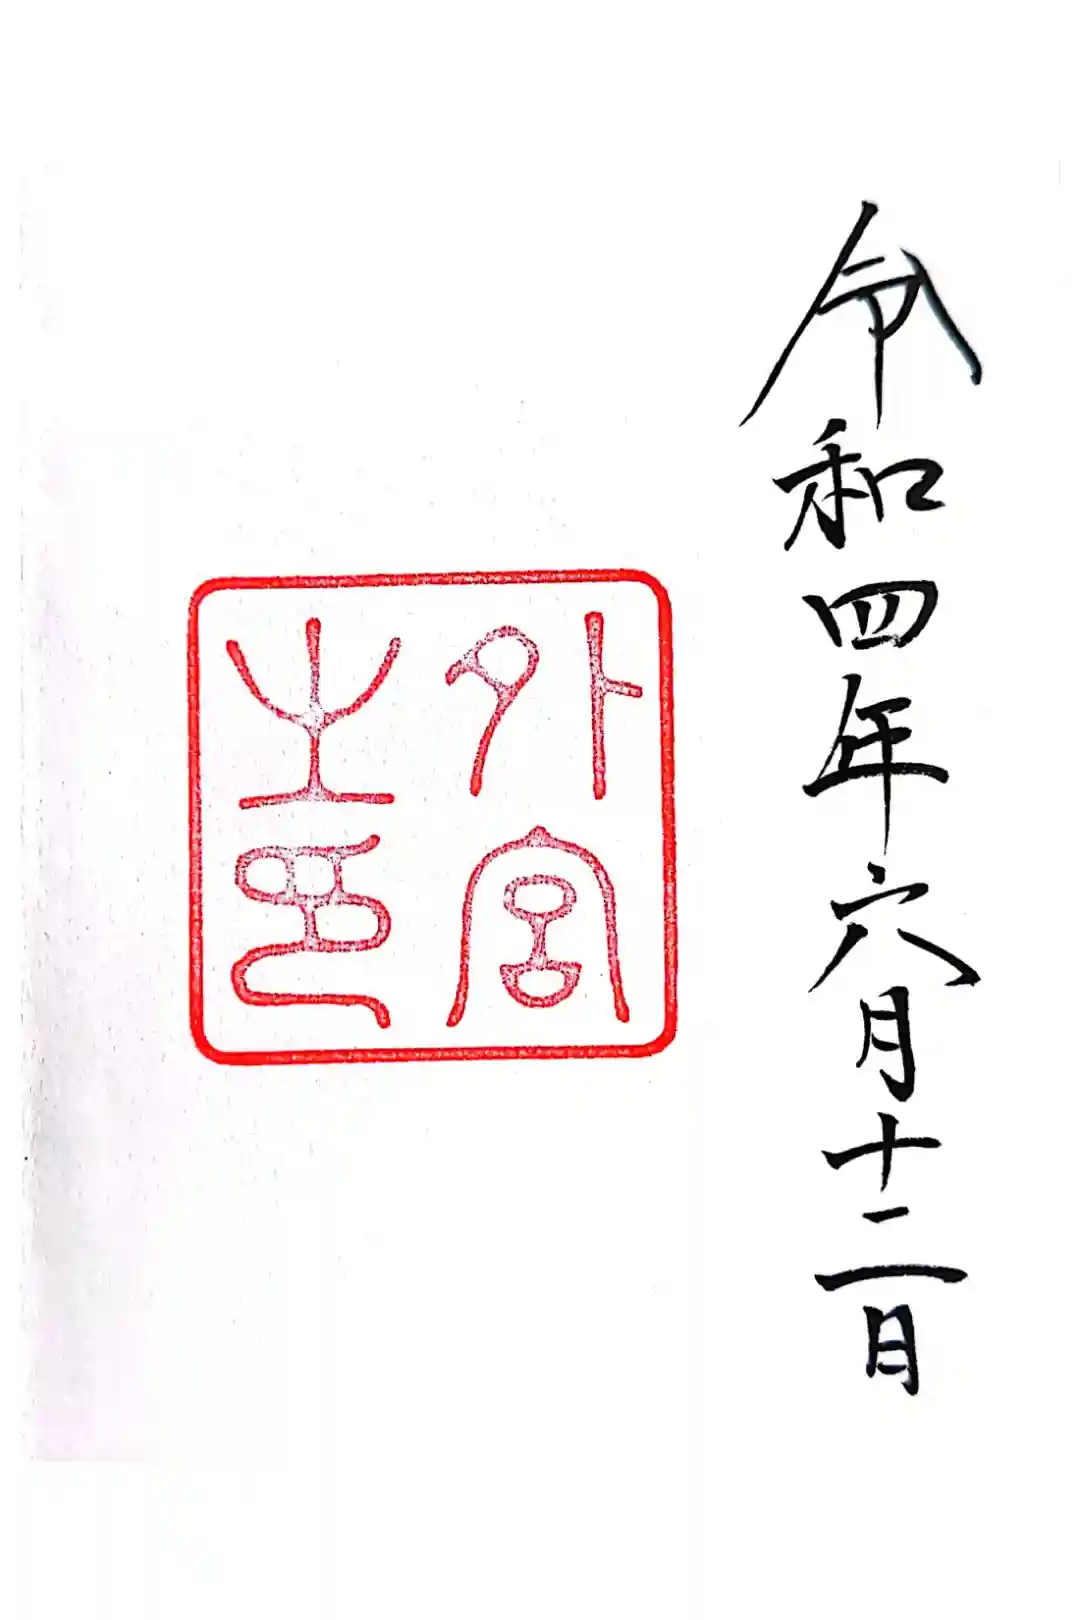 令和四年六月十二日
外宮
之印